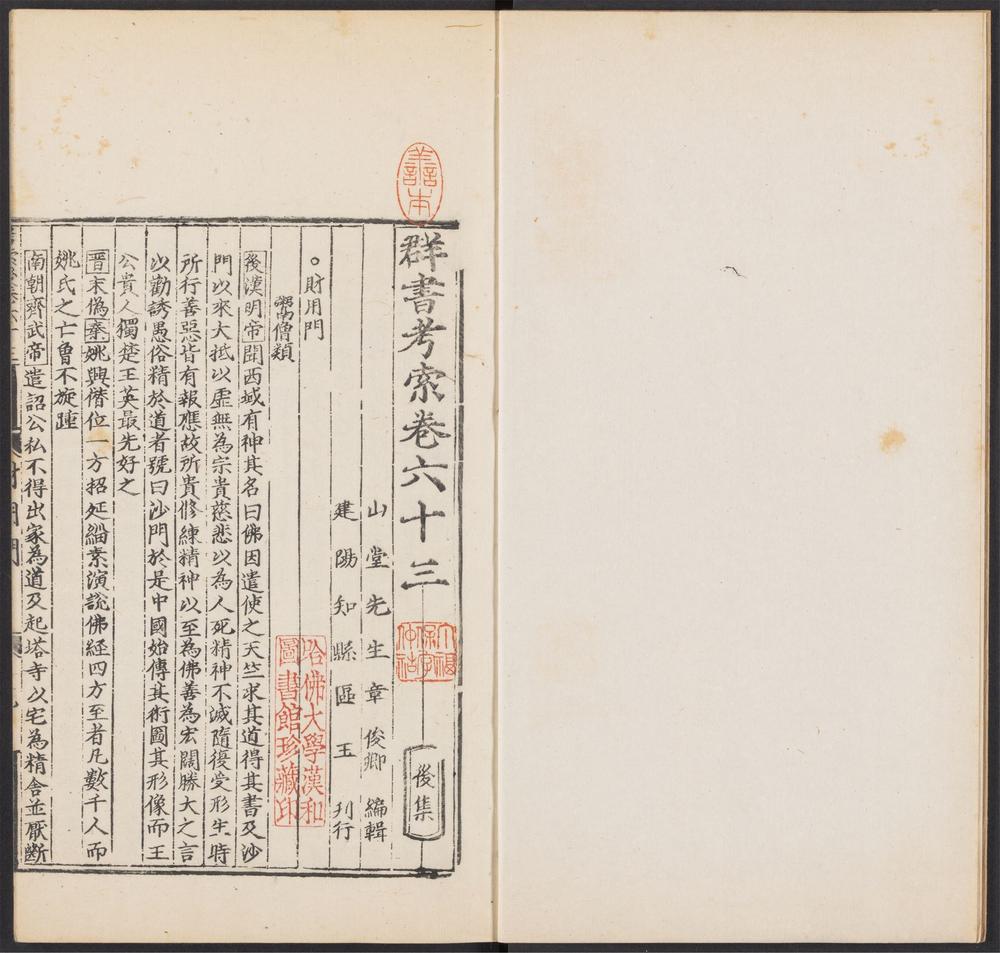 善本
群書考索卷六十三
後集
山堂先生章俊卿編輯
建陽知縣區玉刊行
哈佛大學漢和
圖書館珍藏印
。財用門
鬻僧類
後漢明帝聞西域有神其名曰佛因遣使之天竺求其道得其書及沙
門以來大抵以虛無為宗貴慈悲以為人死精神不滅隨復受形生時
所行善惡皆有報應故所貴修練精神以至為佛善為宏闊勝大之言
以勸誘愚俗精於道者號曰沙門於是中國始傳其術圖其形像而王
公貴人獨楚王英最先好之
晉末偽秦姚興僭位一方招延緇素演說佛経四方至者凡數千人而
姚氏之亡曾不旋踵
南朝齊武帝遣詔公私不得出家為道及起塔寺以宅為精舍並厭斷